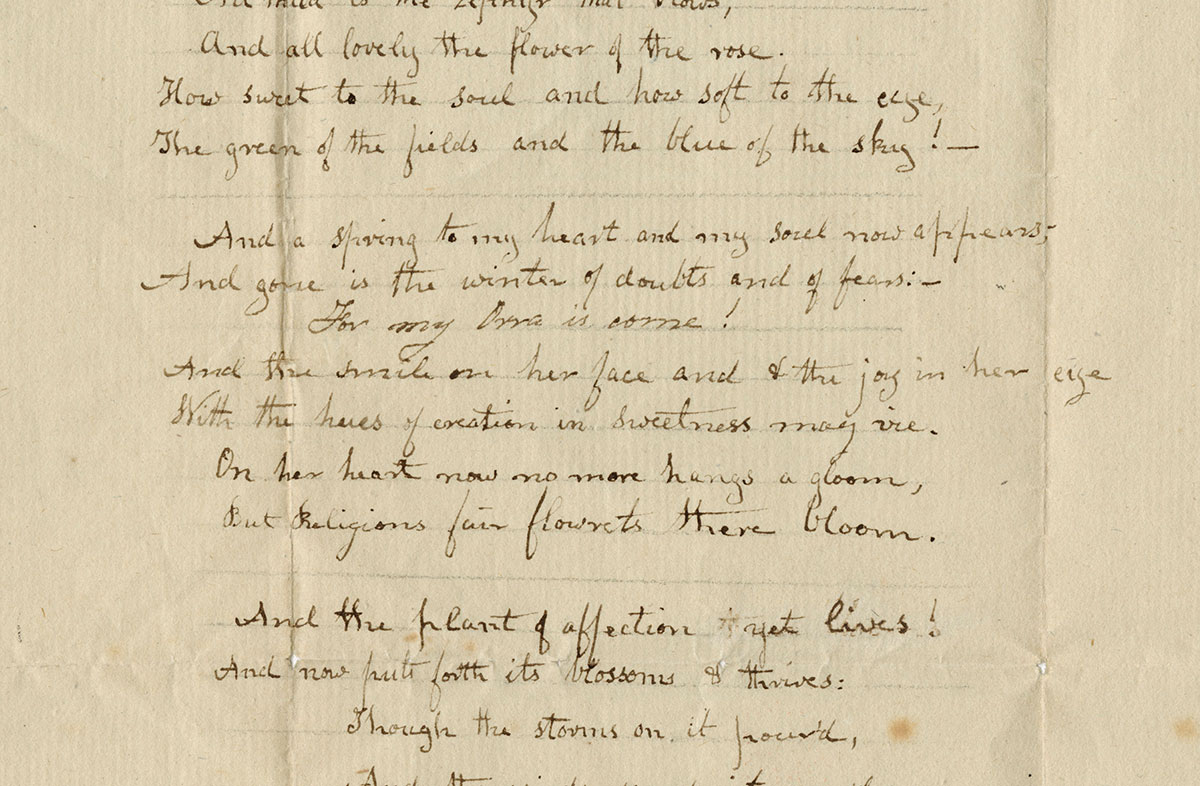 And mild is the zephyr that blows,
And all lovely the flower of the rose.
How sweet to the soul and how soft to the eye,
The green of the fields and the blue of the sky! —
And a spring to my heart and my soul now appears;
And gone is the winter of doubts and of fears: –
For my Orra is come!
And the smile on her face and & the joy in her eye
With the hues of creation in sweetness may vie.
On her heart now no more hangs a gloom,
But Religions fair flowrets there bloom.
And the plant of affection yet lives!
And now puts forth its blossoms & thrives:
Though the storms on it pour'd,
And the